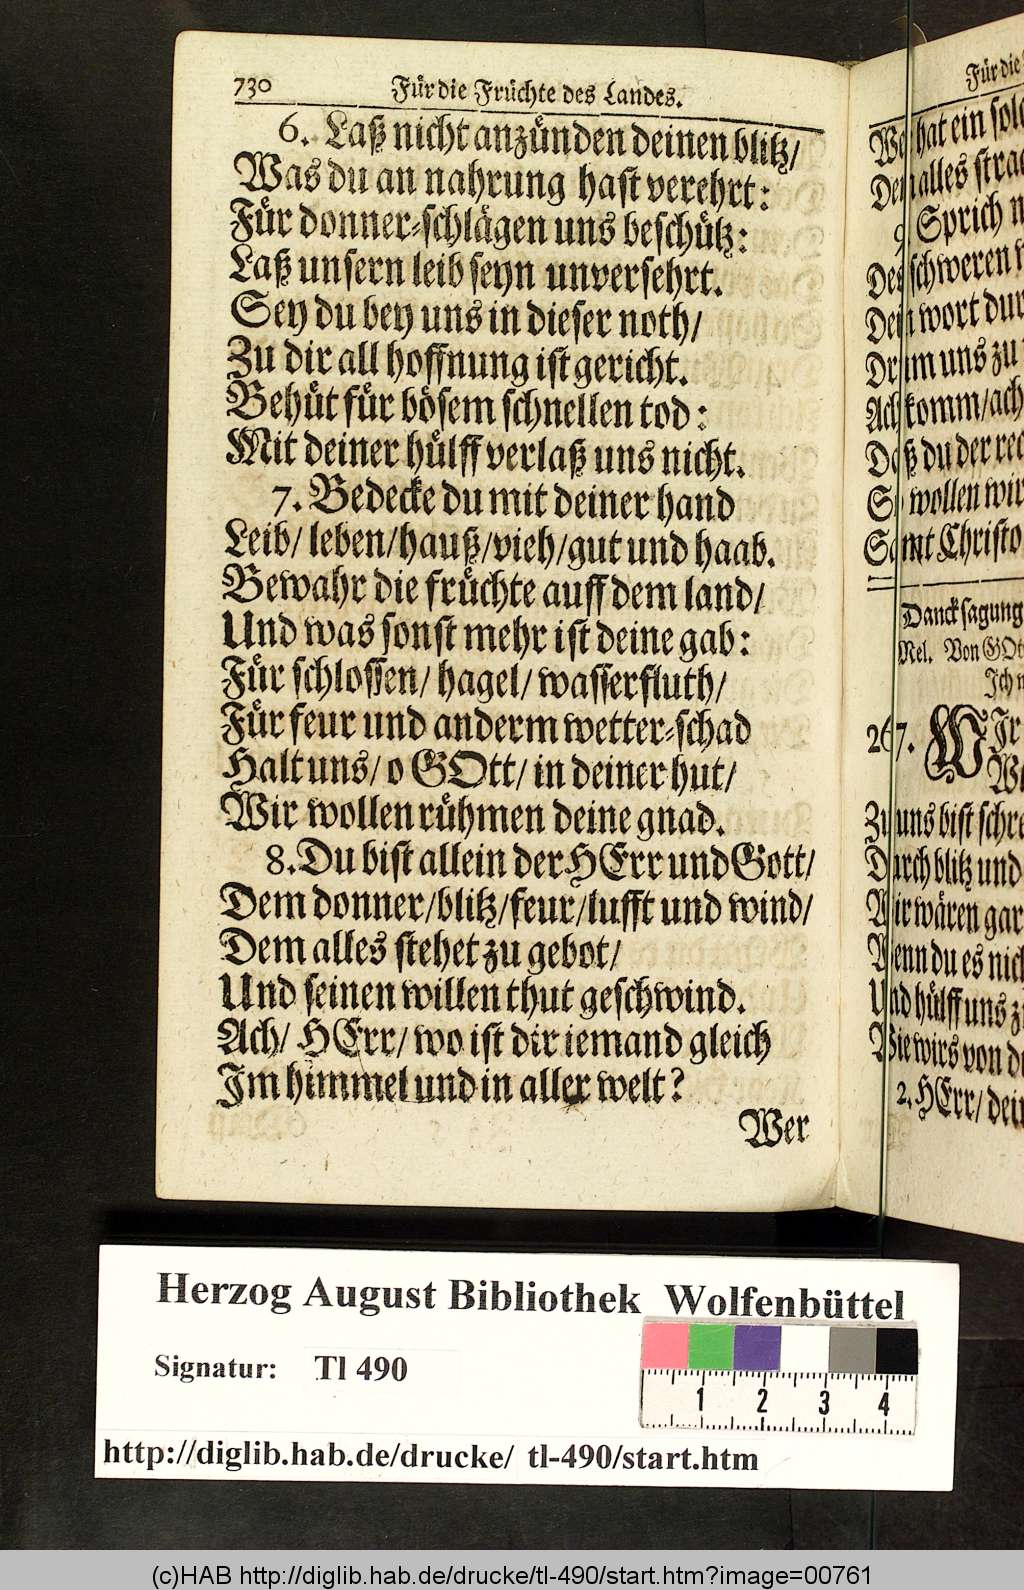 730 Für die Früchte des Landes.
6. Laß nicht anzünden deinen blitz/
Was du an nahrung hast verehrt:
Für donner-schlägen uns beschütz:
Laß unsern leib seyn unversehrt.
Sey du bey uns in dieser noth/
Zu dir all hoffnung ist gericht.
Behüt für bösem schnellen tod:
Mit deiner hülff verlaß uns nicht.
7. Bedecke du mit deiner hand
Leib/ leben/hauß/vieh/gut und haab.
Bewahr die früchte auff dem land/
Und was sonst mehr ist deine gab:
Für schlossen/ hagel/ wasserfluth/
Für feur und anderm wetter-schad
Halt uns/ o GOtt/ in deiner hut/
Wir wollen rühmen deine gnad.
8. Du bist allein der HErr und Gott/
Dem donner/blitz/feur/lufft und wind/
Dem alles stehet zu gebot/
Und seinen willen thut geschwind.
Ach/ HErr/ wo ist dir iemand gleich
Im himmel und in aller welt?
Wer
Für die
hat ein
alles
Sprich
schweren
wort
uns zu
komm/ach
du der
wollen wir
Christo
Dancksagung
Mel. Von GOtt
Ich
267. WIr
Zu uns bist
Durch blitz und
Wir wären gar
Wenn du es
Und hülff uns
Wie wirs von
2. HErr/
Herzog August Bibliothek Wolfenbüttel
Signatur: Tl 490
1 2 3 4
http://diglib.hab.de/drucke/ tl-490/start.htm
(c)HAB http://diglib.hab.de/drucke/tl-490/start.htm?image=00761